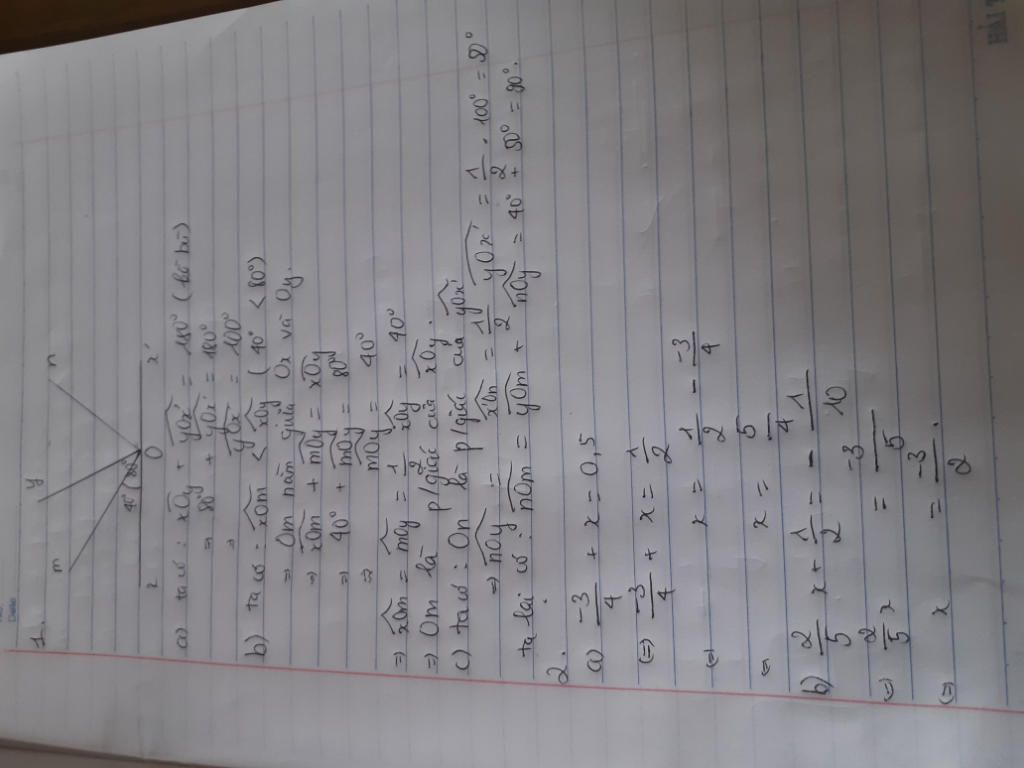 1.
m y n
40° 80°
z O x'
a) ta có: xOy + yOx' = 180° (kề bù)
⇒ 80° + yOx' = 180°
⇒ yOx' = 100°
b) ta có: xOm < xOy (40° < 80°)
⇒ Om nằm giữa Ox và Oy.
⇒ xOm + mOy = xOy
⇒ 40° + mOy = 80°
⇒ mOy = 40°
⇒ xOm = mOy = 1/2 xOy = 40°
⇒ Om là p/giác của xOy.
c) ta có: On là p/giác của yOx'
⇒ nOy = x'On = 1/2 yOx' = 1/2 . 100° = 50°
ta lại có: nOm = yOm + nOy = 40° + 50° = 90°.
2.
a) -3/4 + x = 0,5
(=) -3/4 + x = 1/2
(=) x = 1/2 - -3/4
(=) x = 5/4
b) 2/5 x + 1/2 = - 1/10
(=) 2/5 x = -3/5
(=) x = -3/2.